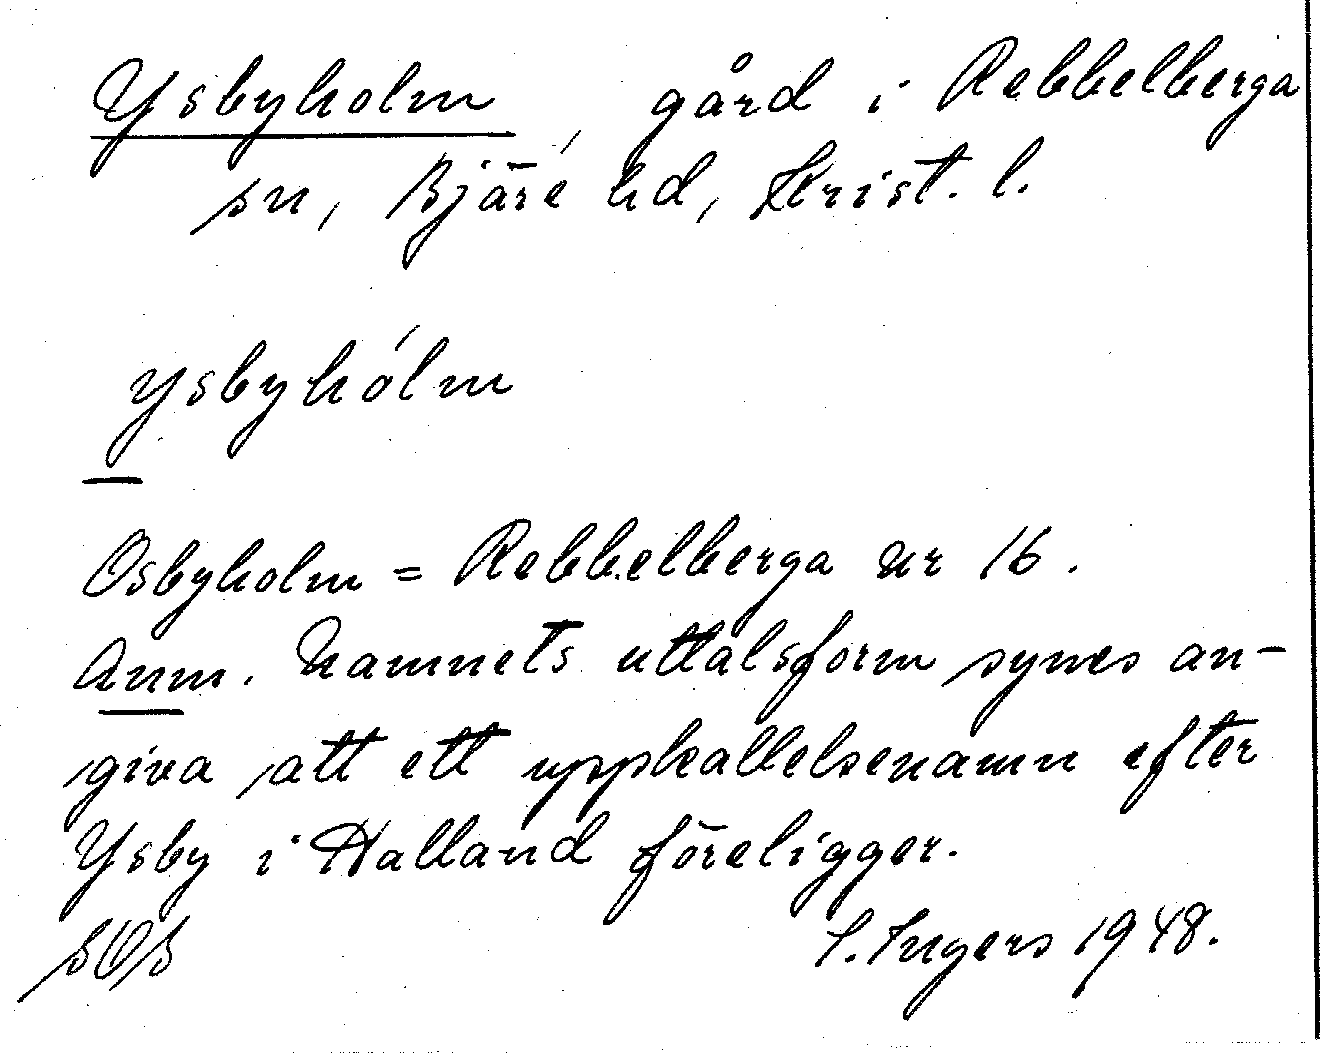 Ysbyholm, gård i Rebbelberga
sn, Bjäre hd, Krist. l.
ysbyhólm
Osbyholm = Rebbelberga nr 16.
Anm. Namnets uttalsform synes an-
giva att ett uppkallelsenamn efter
Ysby i Halland föreligger.
SOS I. Ingers 1948.